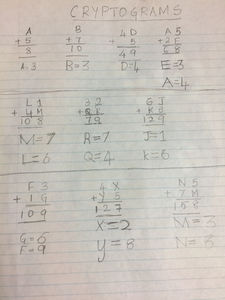 CRYPTOGRAMS
A B 4D A5
+5 +7 + 5 +2E
8 10 49 68
A=3 B=3 D=4 E=3
A=4
L1 32 6J
+4M +K8
108 79 129
M=7 R=7 J=1
L=6 Q=4 K=6
F3 4X N5
+1G +Y5 +7M
109 127 158
G=6 X=2 M=3
F=9 y=8 N=8